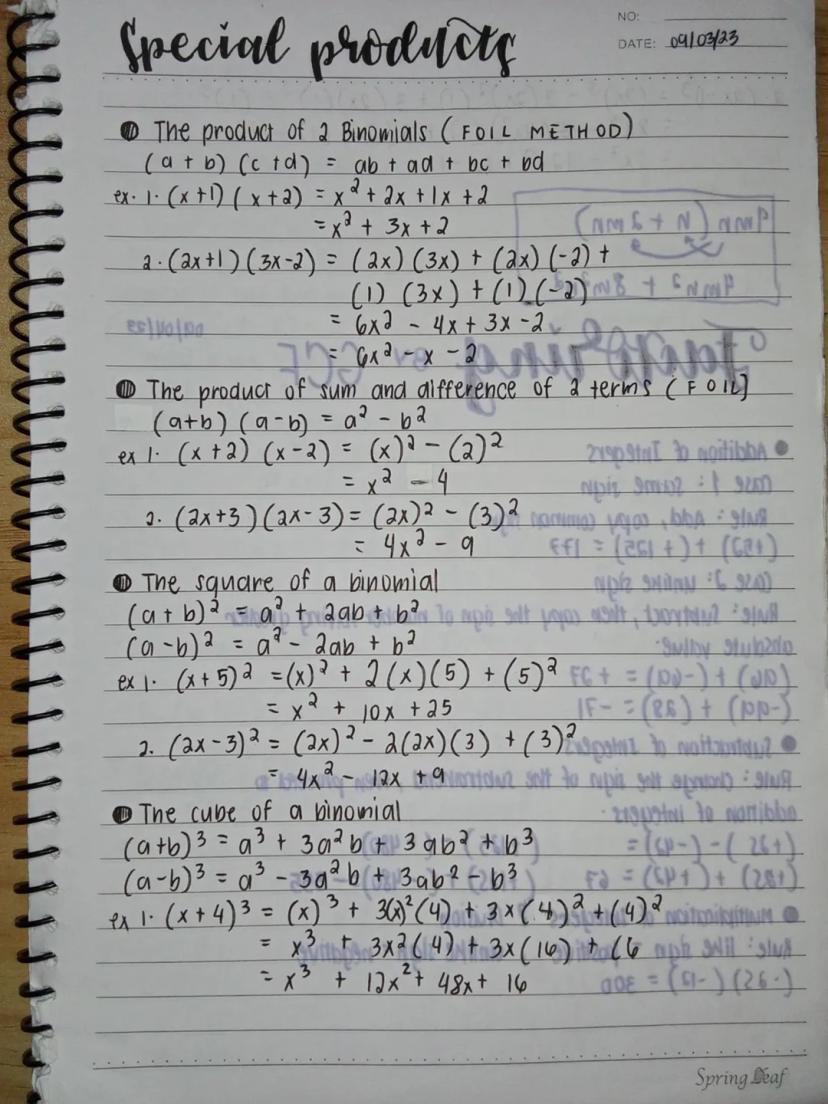 Special products
NO:
DATE: 09/03/23
The product of 2 Binomials (FOIL METHOD)
(a + b) (c + d) = ab + ad + bc + bd
ex. 1. (x+1) (x+2) = x² + 2x + 1x + 2
= x² + 3x + 2
2. (2x+1) (3x-2) = (2x) (3x) + (2x) (-2) +
(1) (3x) + (1) (-2)
= 6x² - 4x + 3x - 2
= 6x² - x - 2
The product of sum and difference of 2 terms (FOIL]
(a+b) (a-b) = a² - b²
ex 1. (x+2) (x-2) = (x)² - (2)²
= x² - 4
2. (2x+3) (2x-3) = (2x)² - (3)²
= 4x² - 9
The square of a binomial
(a+b)² = a² + 2ab + b²
(a-b)² = a² - 2ab + b²
ex 1. (x+5)² = (x)² + 2(x)(5) + (5)²
= x² + 10x + 25
2. (2x-3)² = (2x)² - 2(2x)(3) + (3)²
= 4x² - 12x + 9
The cube of a binomial
(a+b)³ = a³ + 3a²b + 3ab² + b³
(a-b)³ = a³ - 3a²b + 3ab² - b³
ex 1. (x+4)³ = (x)³ + 3(x)²(4) + 3x(4)² + (4)²
= x³ + 3x²(4) + 3x(16) + 16
= x³ + 12x² + 48x + 16
Spring Leaf